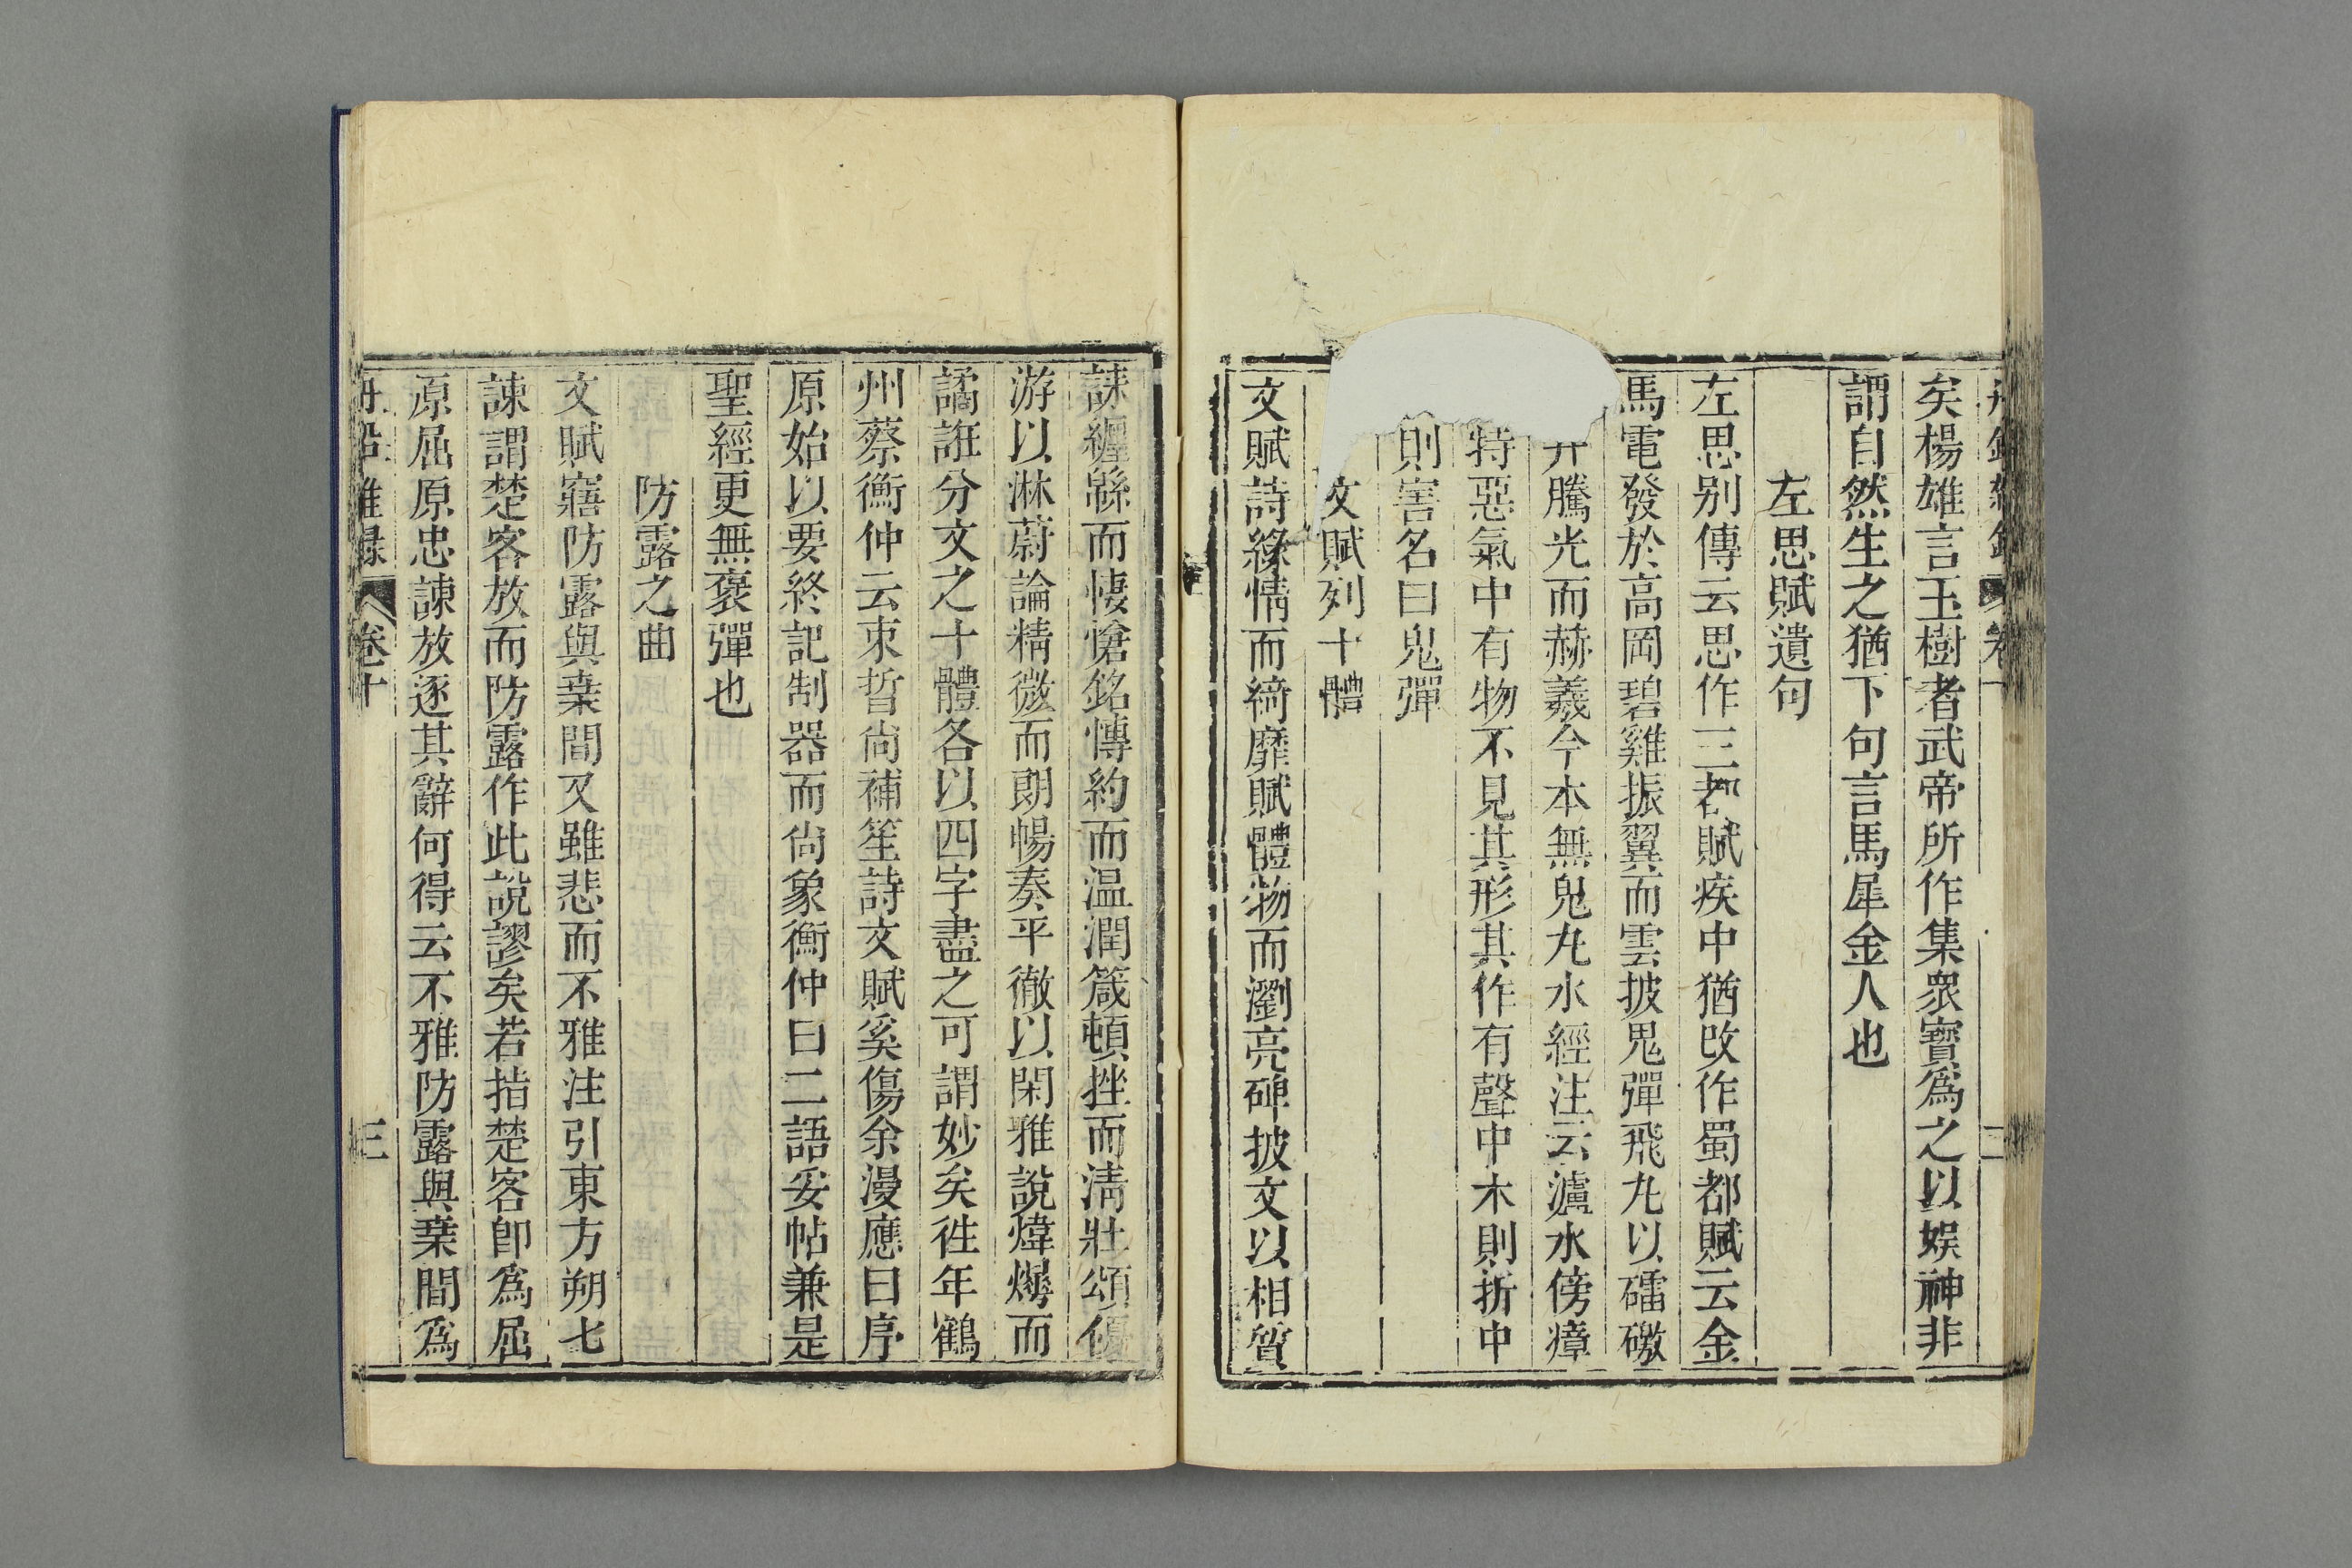 矣楊雄言玉樹者武帝所作集眾寶爲之以娛神非
謂自然生之猶下句言馬犀金人也
左思賦遺句
左思别傳云思作三都賦疾中猶改作蜀都賦云金
馬電發於高岡碧雞振翼而雲披鬼彈飛丸以礌礉
井騰光而赫羲今本無鬼丸水經注云瀘水傍瘴
特惡氣中有物不見其形其作有聲中木則折中
則害名曰鬼彈
文賦列十體
文賦詩緣情而綺靡賦體物而瀏亮碑披文以相質
誄纏緜而悽愴銘慱約而温潤箴頓挫而清壯頌優
游以淋蔚論精微而朗暢奏平徹以閑雅說煒爗而
譎誑分文之十體各以四字盡之可謂妙矣徃年鶴
州蔡衡仲云束晳尙補笙詩文賦奚傷余漫應曰序
原始以要終記制器而尙象衡仲曰二語妥帖兼是
聖經更無褒彈也
防露之曲
文賦寤防露與桒間又雖悲而不雅注引東方朔七
諫謂楚客放而防露作此說謬矣若指楚客卽爲屈
原屈原忠諫放逐其辭何得云不雅防露與桒間爲
卷十
三